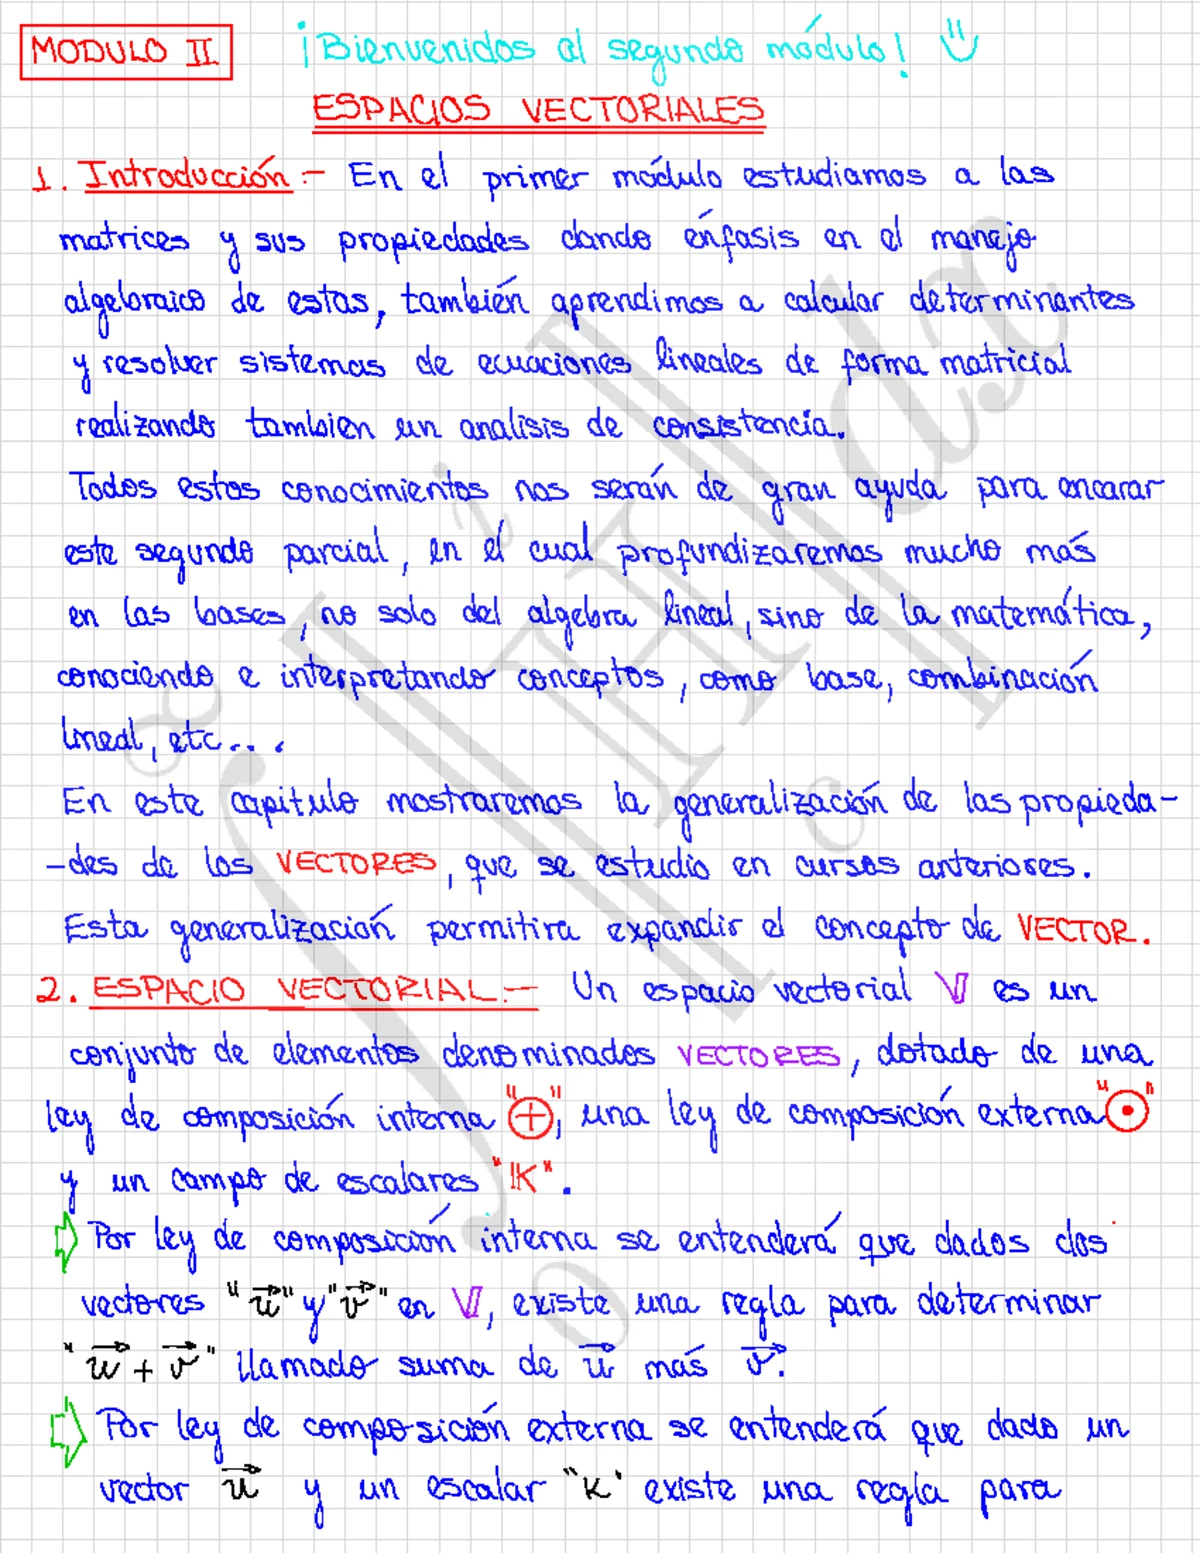 MODULO II ¡Bienvenidos al segundo módulo!
ESPACIOS VECTORIALES
1. Introducción:- En el primer módulo estudiamos a las
matrices y sus propiedades dando énfasis en el manejo
algebraico de estas, también aprendimos a calcular determinantes
y resolver sistemas de ecuaciones lineales de forma matricial
realizando tambien un analisis de consistencia.
Todos estos conocimientos nos serán de gran ayuda para encarar
este segundo parcial, en el cual profundizaremos mucho más
en las bases, no solo del algebra lineal, sino de la matemática,
conociendo e interpretando conceptos, como base, combinación
lineal, etc...
En este capitulo mostraremos la generalización de las propieda-
-des de los VECTORES, que se estudio en cursos anteriores.
Esta generalización permitira expandir el concepto de VECTOR.
2. ESPACIO VECTORIAL:- Un espacio vectorial V es un
conjunto de elementos denominados VECTORES, dotado de una
ley de composición interna "⊕", una ley de composición externa "⊙"
y un campo de escalares "K".
Por ley de composición interna se entenderá que dados dos
vectores "u⃗" y "v⃗" en V, existe una regla para determinar
"u⃗ + v⃗" llamado suma de u⃗ más v⃗.
Por ley de composición externa se entenderá que dado un
vector u⃗ y un escalar "K" existe una regla para